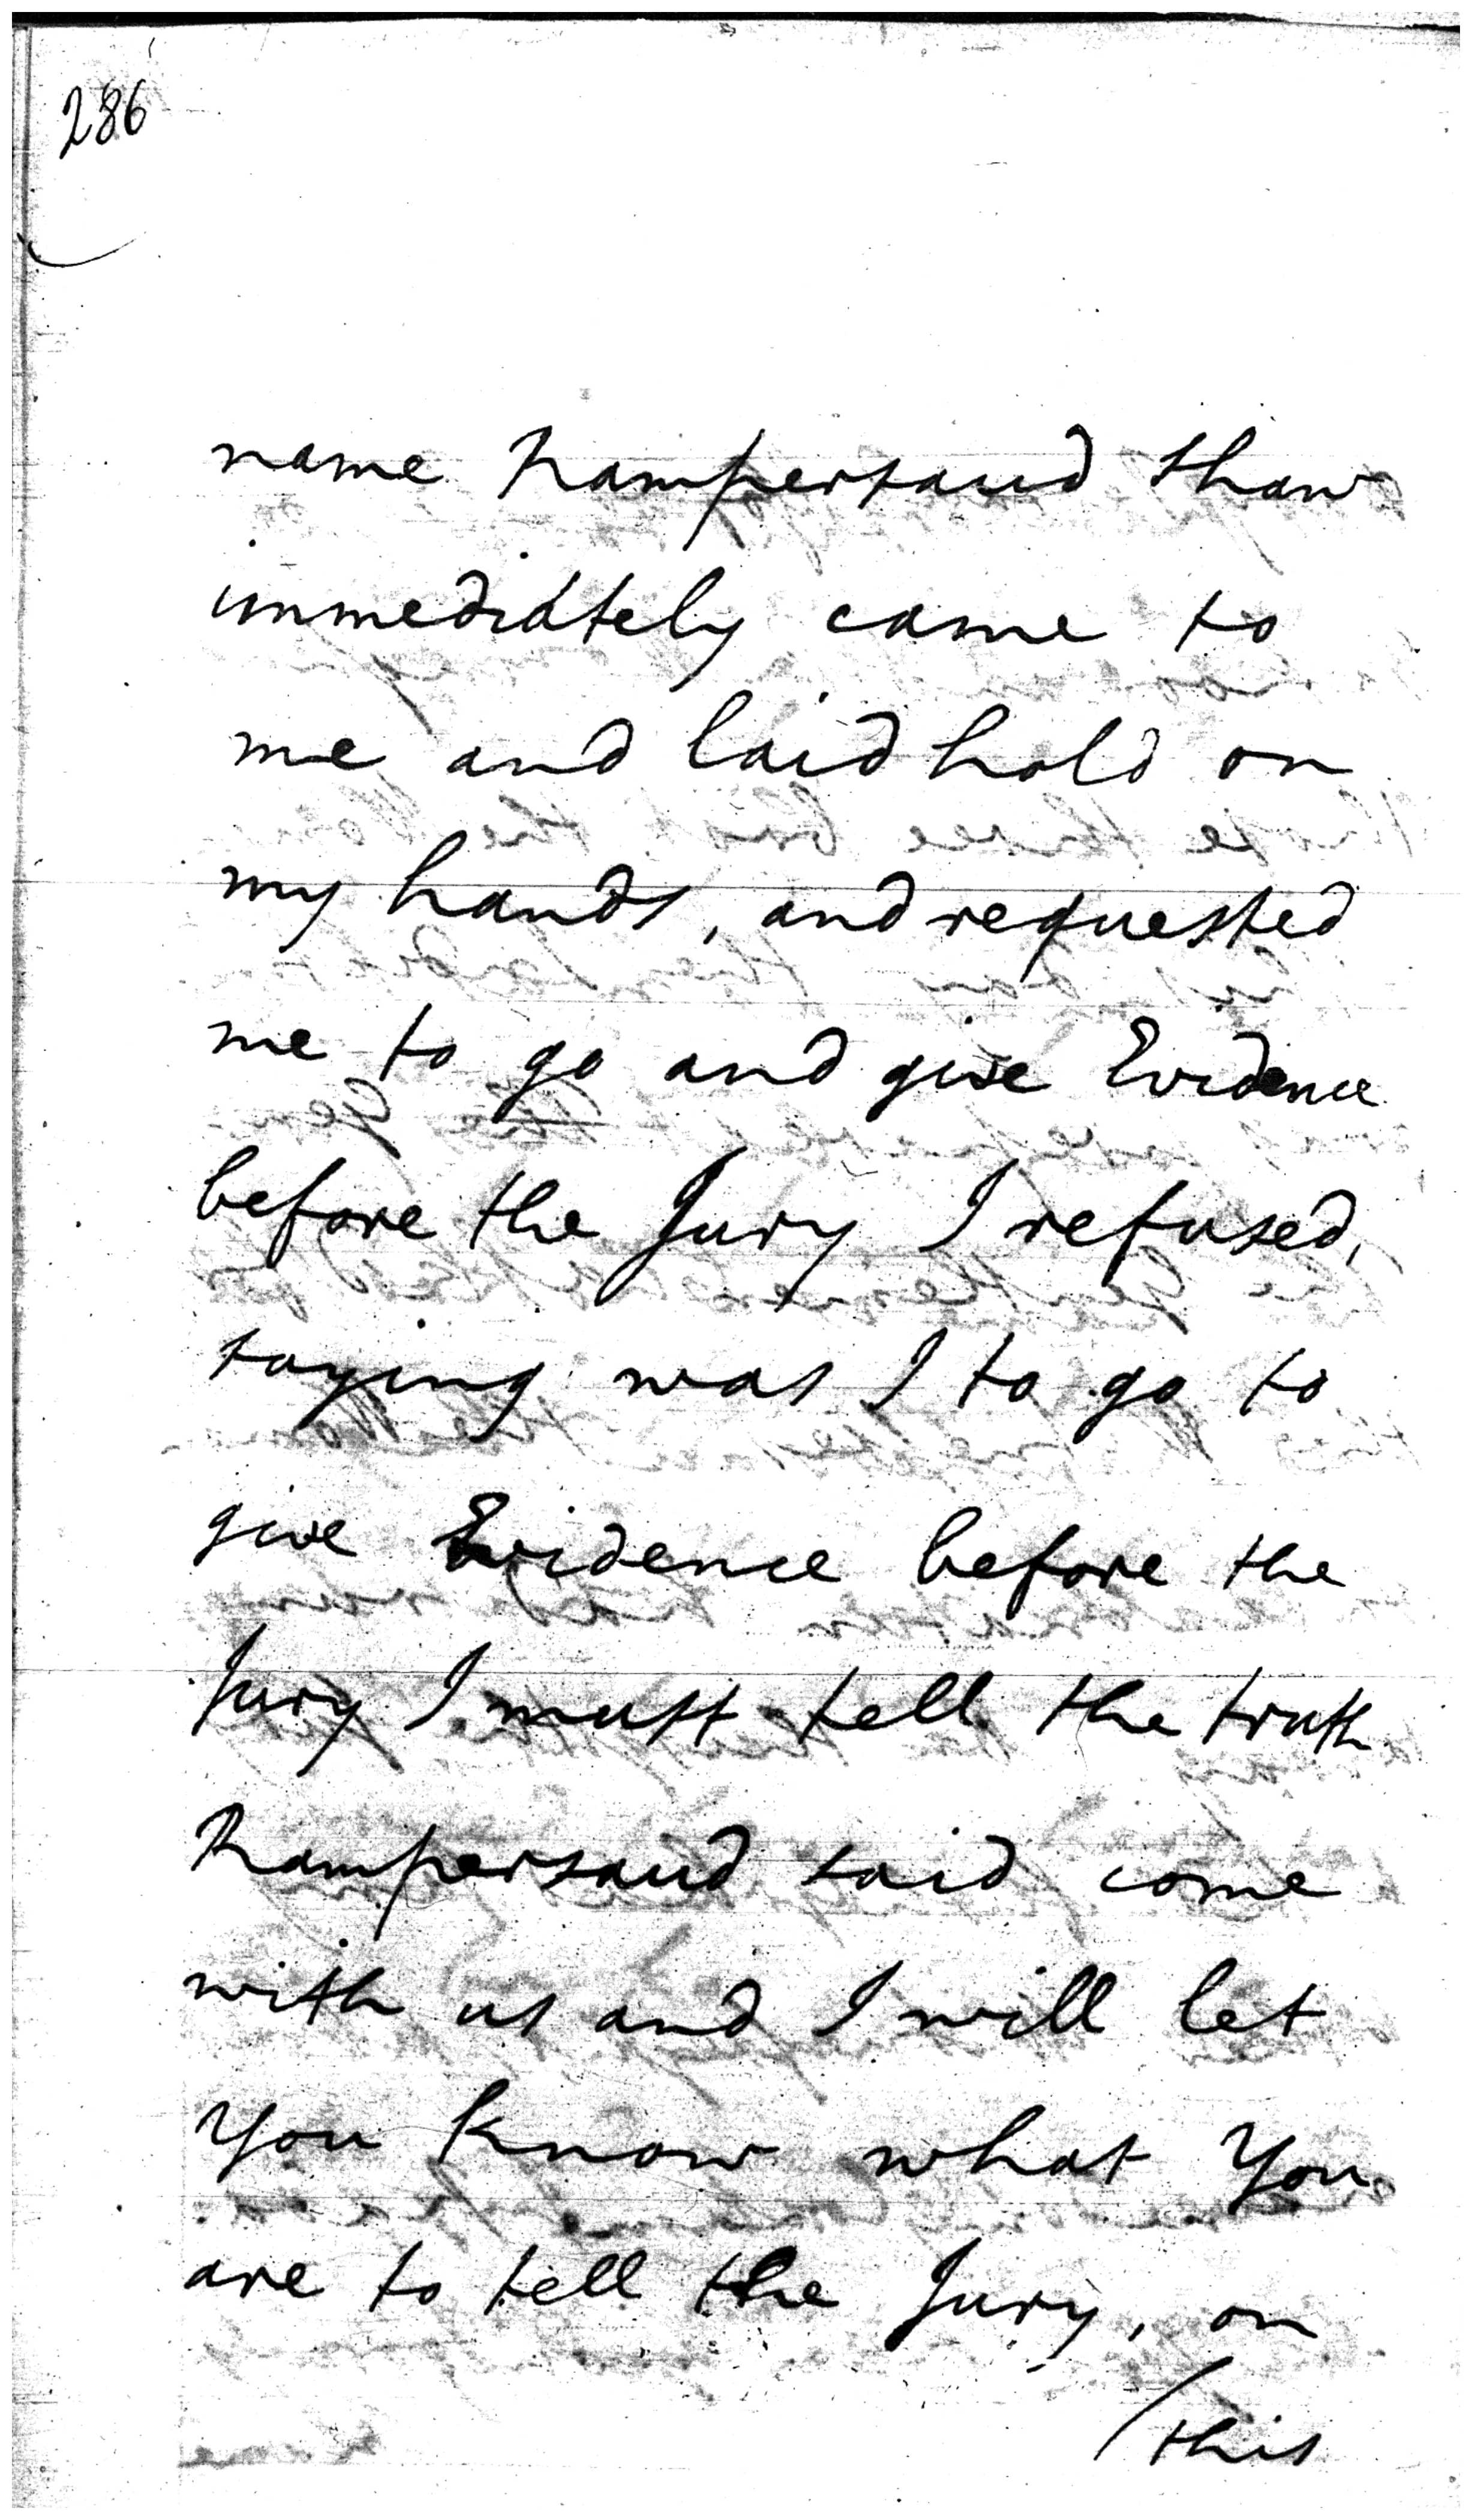 286
name Rampersaud Shaw
immediately came to
me and laid hold on
my hands, and requested
me to go and give Evidence
before the Jury I refused,
saying was I to go to
give Evidence before the
Jury I must tell the truth
Rampersaud said come
with us and I will let
you know what you
are to tell the Jury, on
/this